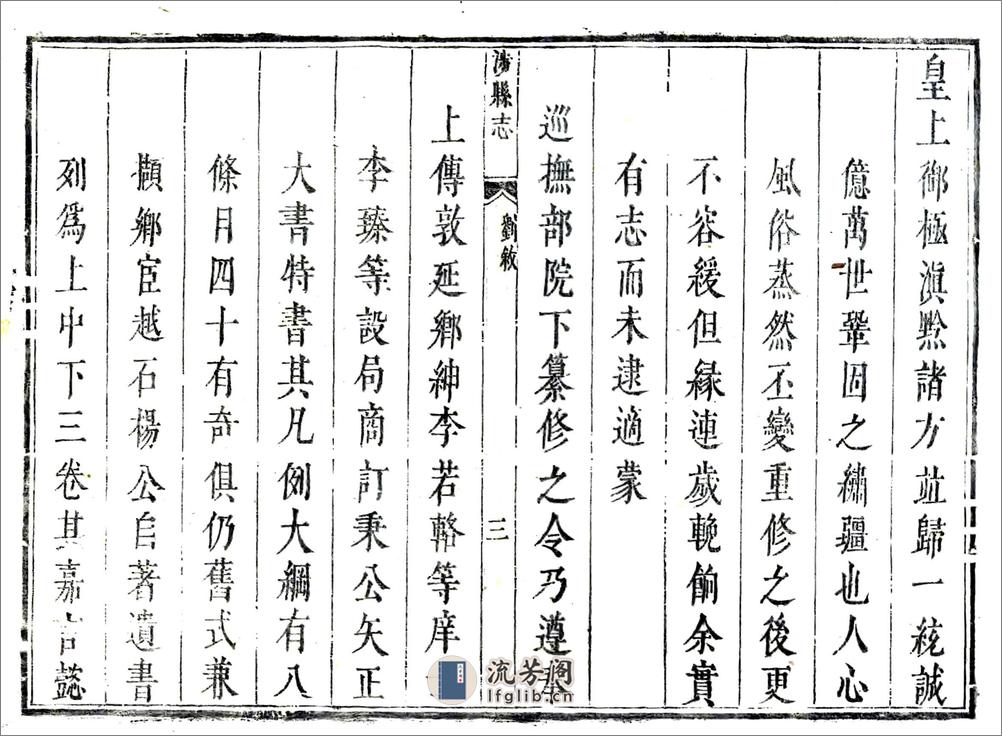 皇上御極滇黔諸方並歸一統誠
億萬世鞏固之繡疆也人心
風俗蒸然丕變重修之後更
不容緩但緣連歲輓餉余實
有志而未逮適蒙
巡撫部院下纂修之令乃遵奉
涉縣志
劉敘
三
上傳敦延鄉紳李若輅等庠
李臻等設局商訂秉公矢正
大書特書其凡例大綱有八
條目四十有奇俱仍舊式兼
擷鄉宦越石楊公自著遺書
列爲上中下三卷其嘉言懿
流芳阁
lfglib.cn